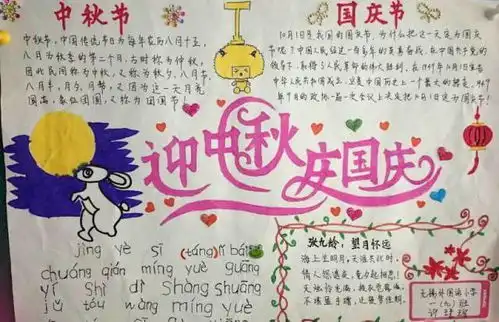 中秋节
中秋节，中国传统节日为每年农历八月十五，
八月为秋季的第二个月，古时称为仲秋，
因此民间称为中秋，又称为秋夕、八月节、
八月半，月夕，月节，又因为这一天月亮
圆满，象征团圆，又称为团圆节！
国庆节
10月1日是我国的国庆节，为什么把这一天定为国庆
节呢？中国人民经过一百多年的英勇奋战，在中国共产党的
领导下，取得了人民革命的伟大胜利，在1949年10月1日宣告
中华人民共和国成立，这是中国历史上一个最大的转变，1949
迎中秋 庆国庆
jìng yè sī (táng) lǐ bái
chuáng qián míng yuè guāng
yí shì dì shàng shuāng
jǔ tóu wàng míng yuè
张九龄：望月怀远
海上生明月，天涯共此时。
情人怨遥夜，竟夕起相思！
灭烛怜光满，披衣觉露滋。
不堪盈手赠，还寝梦佳期。
无锡外国语小学
一（九）班